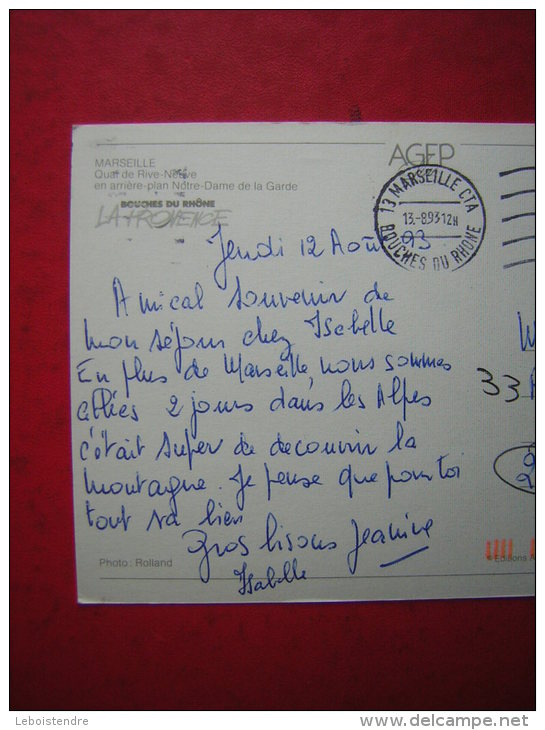 AGEP
MARSEILLE
Quai de Rive-Neuve
en arrière-plan Nôtre-Dame de la Garde
BOUCHES DU RHÔNE
LA PROVENCE
13 MARSEILLE CTA
13.-8.93 12H
BOUCHES DU RHONE
Jeudi 12 Août 93
Amical souvenir de
mon séjour chez Isabelle
En plus de Marseille nous sommes
allées 2 jours dans les Alpes
c'était super de decouvrir la
montagne. Je pense que pour toi
tout va bien
Gros bisous Jeanine
Isabelle
33
Photo : Rolland
© Editions A
Leboistendre
www.delcampe.net